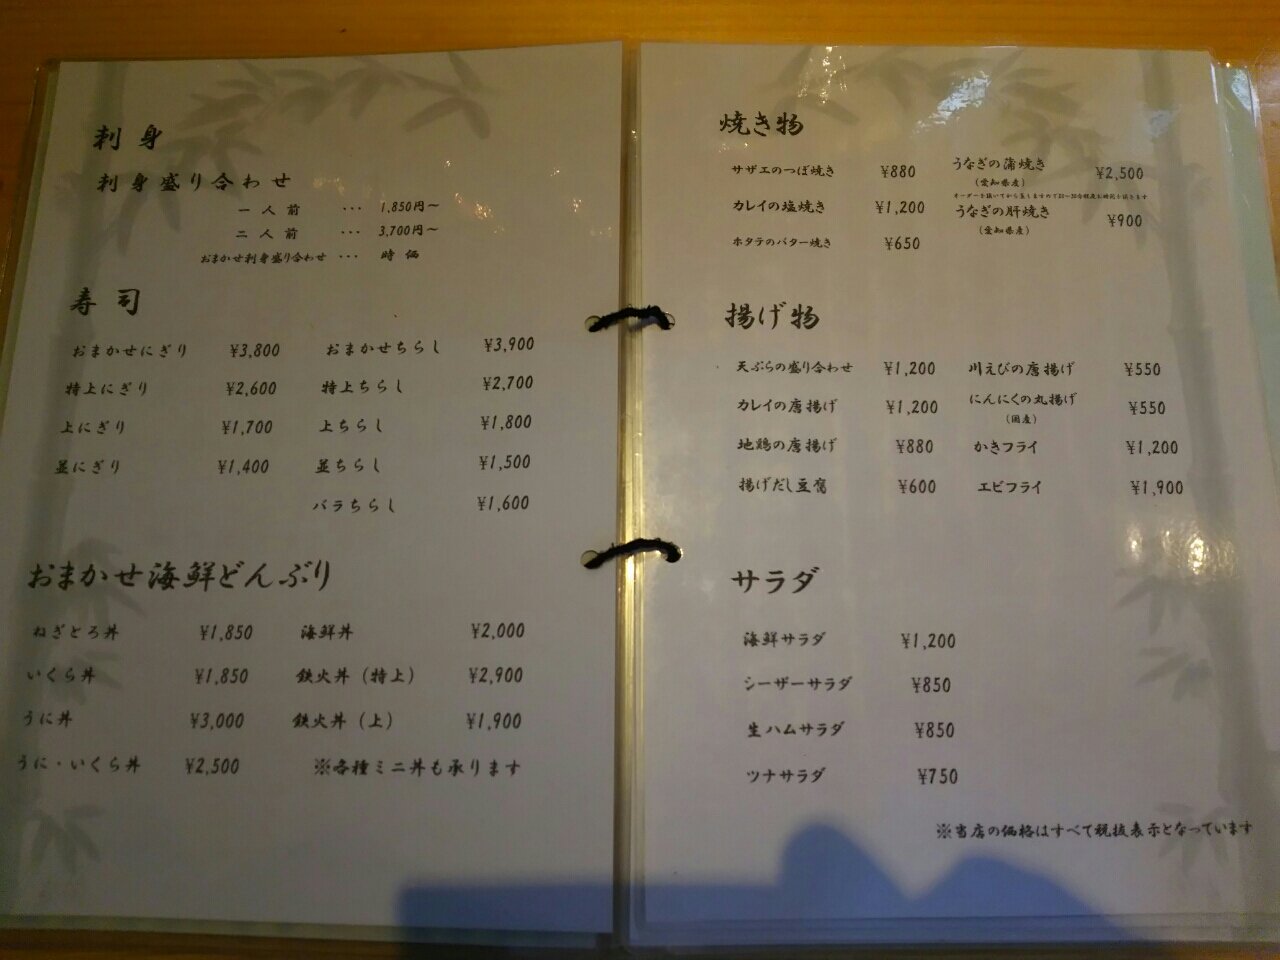 刺身
刺身盛り合わせ
一人前 ··· 1,850円〜
二人前 ··· 3,700円〜
おまかせ刺身盛り合わせ ··· 時価
寿司
おまかせにぎり ¥3,800 おまかせちらし ¥3,900
特上にぎり ¥2,600 特上ちらし ¥2,700
上にぎり ¥1,700 上ちらし ¥1,800
並にぎり ¥1,400 並ちらし ¥1,500
バラちらし ¥1,600
おまかせ海鮮どんぶり
ねぎとろ丼 ¥1,850 海鮮丼 ¥2,000
いくら丼 ¥1,850 鉄火丼（特上） ¥2,900
うに丼 ¥3,000 鉄火丼（上） ¥1,900
うに・いくら丼 ¥2,500 ※各種ミニ丼も承ります
焼き物
サザエのつぼ焼き ¥880 うなぎの蒲焼き ¥2,500
（愛知県産）
オーダーを頂いてから蒸しますので20〜30分程度お時間を頂きます
カレイの塩焼き ¥1,200 うなぎの肝焼き ¥900
（愛知県産）
ホタテのバター焼き ¥650
揚げ物
天ぷらの盛り合わせ ¥1,200 川えびの唐揚げ ¥550
カレイの唐揚げ ¥1,200 にんにくの丸揚げ ¥550
（国産）
地鶏の唐揚げ ¥880 かきフライ ¥1,200
揚げだし豆腐 ¥600 エビフライ ¥1,900
サラダ
海鮮サラダ ¥1,200
シーザーサラダ ¥850
生ハムサラダ ¥850
ツナサラダ ¥750
※当店の価格はすべて税抜表示となっています